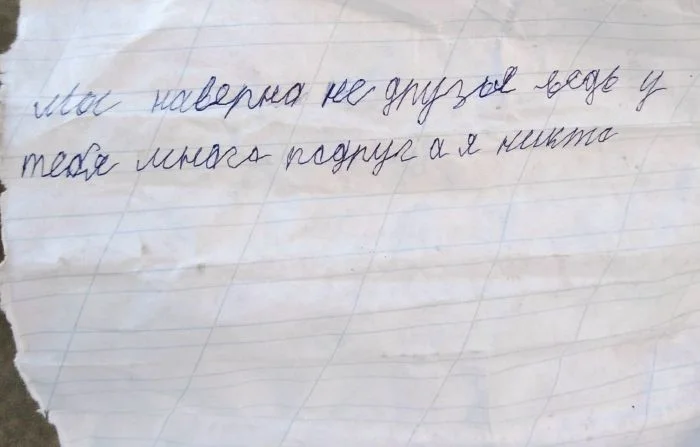 Мы наверна не друзья ведь у
тебя много подруг а я никто